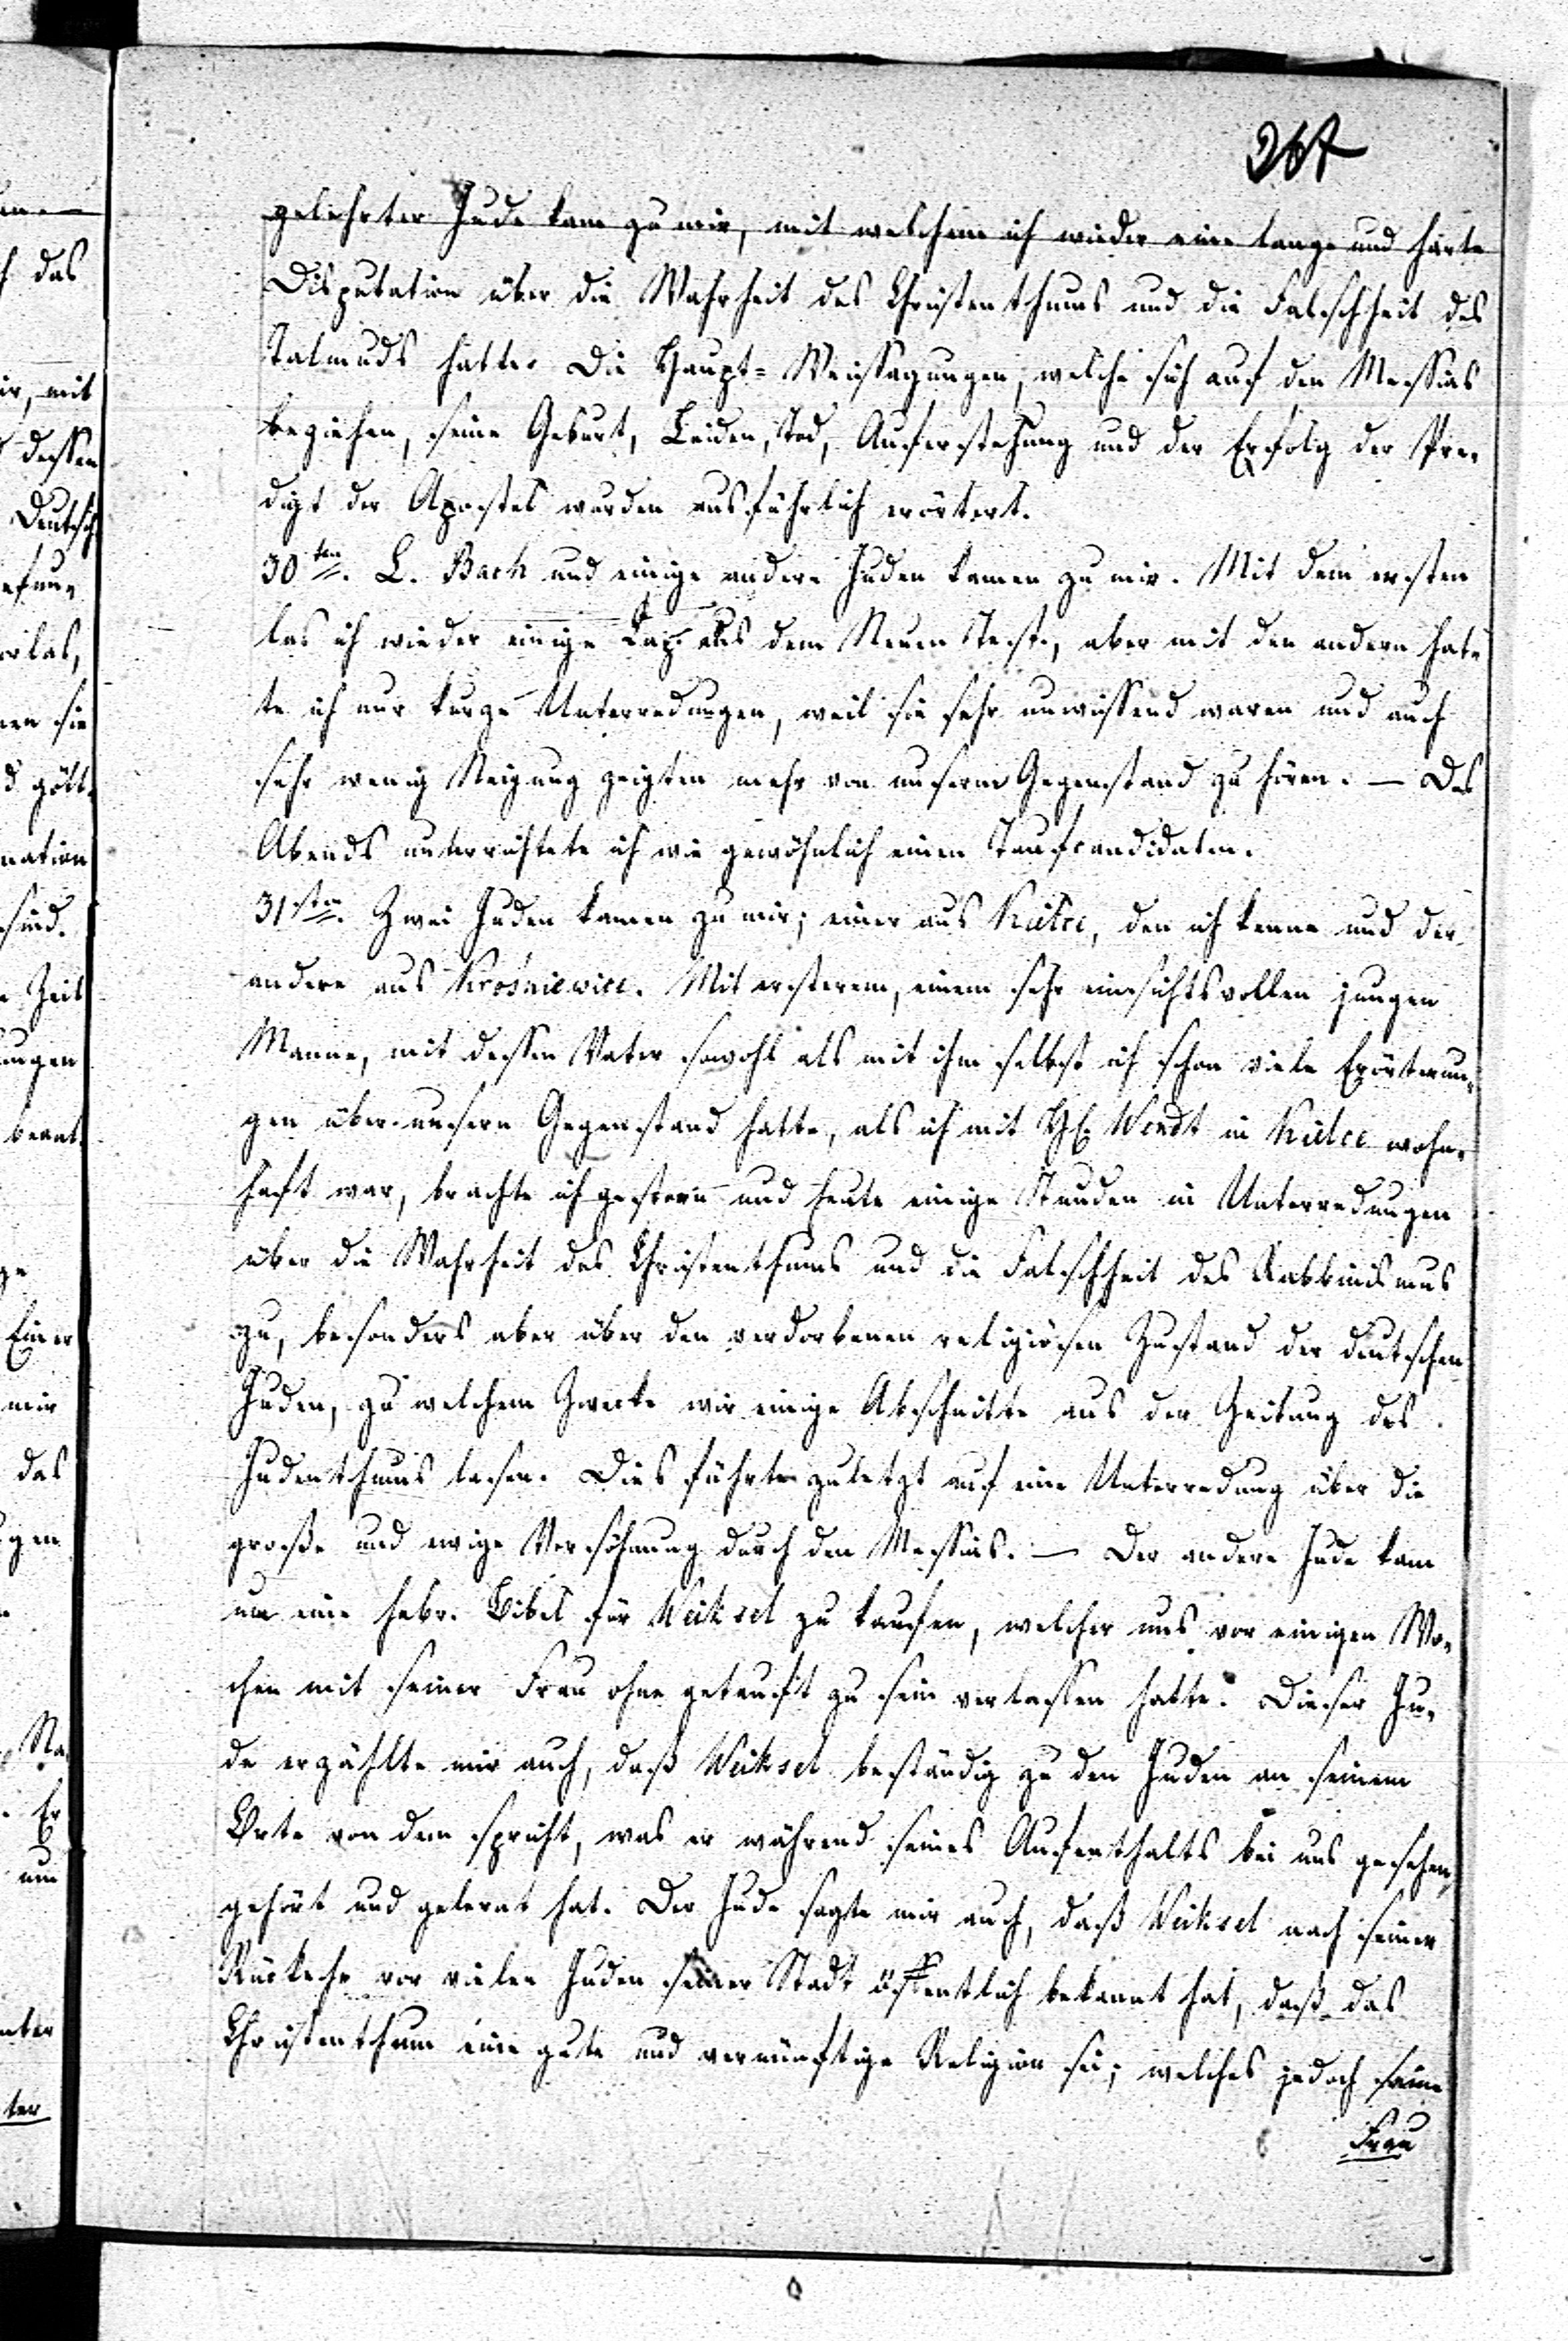 267
gelehrter Jude kam zu mir, mit welchem ich wieder eine lange und harte
Disputation über die Wahrheit des Christenthums und die Falschheit des
Talmuds hatte. Die Haupt-Weissagungen, welche sich auf den Messias
beziehen, seine Geburt, Leiden, Tod, Auferstehung und der Erfolg der Pre-
digt der Apostel wurden ausführlich erörtert.
30ten. L. Bach und einige andere Juden kamen zu mir. Mit dem ersten
las ich wieder einige Cap. aus dem Neuen Test., aber mit den andern hat-
te ich nur kurze Unterredungen, weil sie sehr unwissend waren und auch
sehr wenig Neigung zeigten mehr von unserm Gegenstand zu hören. — Des
Abends unterrichtete ich wie gewöhnlich einen Taufcandidaten.
31sten. Zwei Juden kamen zu mir; einer aus Kielce, den ich kenne und der
andere aus Krośniewice. Mit ersterem, einem sehr einsichtsvollen jungen
Manne, mit dessen Vater sowohl als mit ihm selbst ich schon viele Erörterun-
gen über unsern Gegenstand hatte, als ich mit H. Wendt in Kielce wohn-
haft war, brachte ich gestern und heute einige Stunden in Unterredungen
über die Wahrheit des Christenthums und die Falschheit des Rabbinismus
zu, besonders aber über den verdorbenen religiösen Zustand der deutschen
Juden, zu welchem Zwecke wir einige Abschnitte aus der Zeitung des
Judenthums lasen. Dies führte zuletzt auf eine Unterredung über die
große und ewige Versöhnung durch den Messias. — Der andere Jude kam
um eine hebr. Bibel für Weiksel zu kaufen, welcher uns vor einigen Wo-
chen mit seiner Frau ohne getauft zu sein verlassen hatte. Dieser Ju-
de erzählte mir auch, daß Weiksel beständig zu den Juden an seinem
Orte von dem spricht, was er während seines Aufenthalts bei uns gesehen,
gehört und gelernt hat. Der Jude sagte mir auch, daß Weiksel nach seiner
Rückkehr vor vielen Juden seiner Stadt öffentlich bekannt hat, daß das
Christenthum eine gute und vernünftige Religion sei; welches jedoch seine
Frau